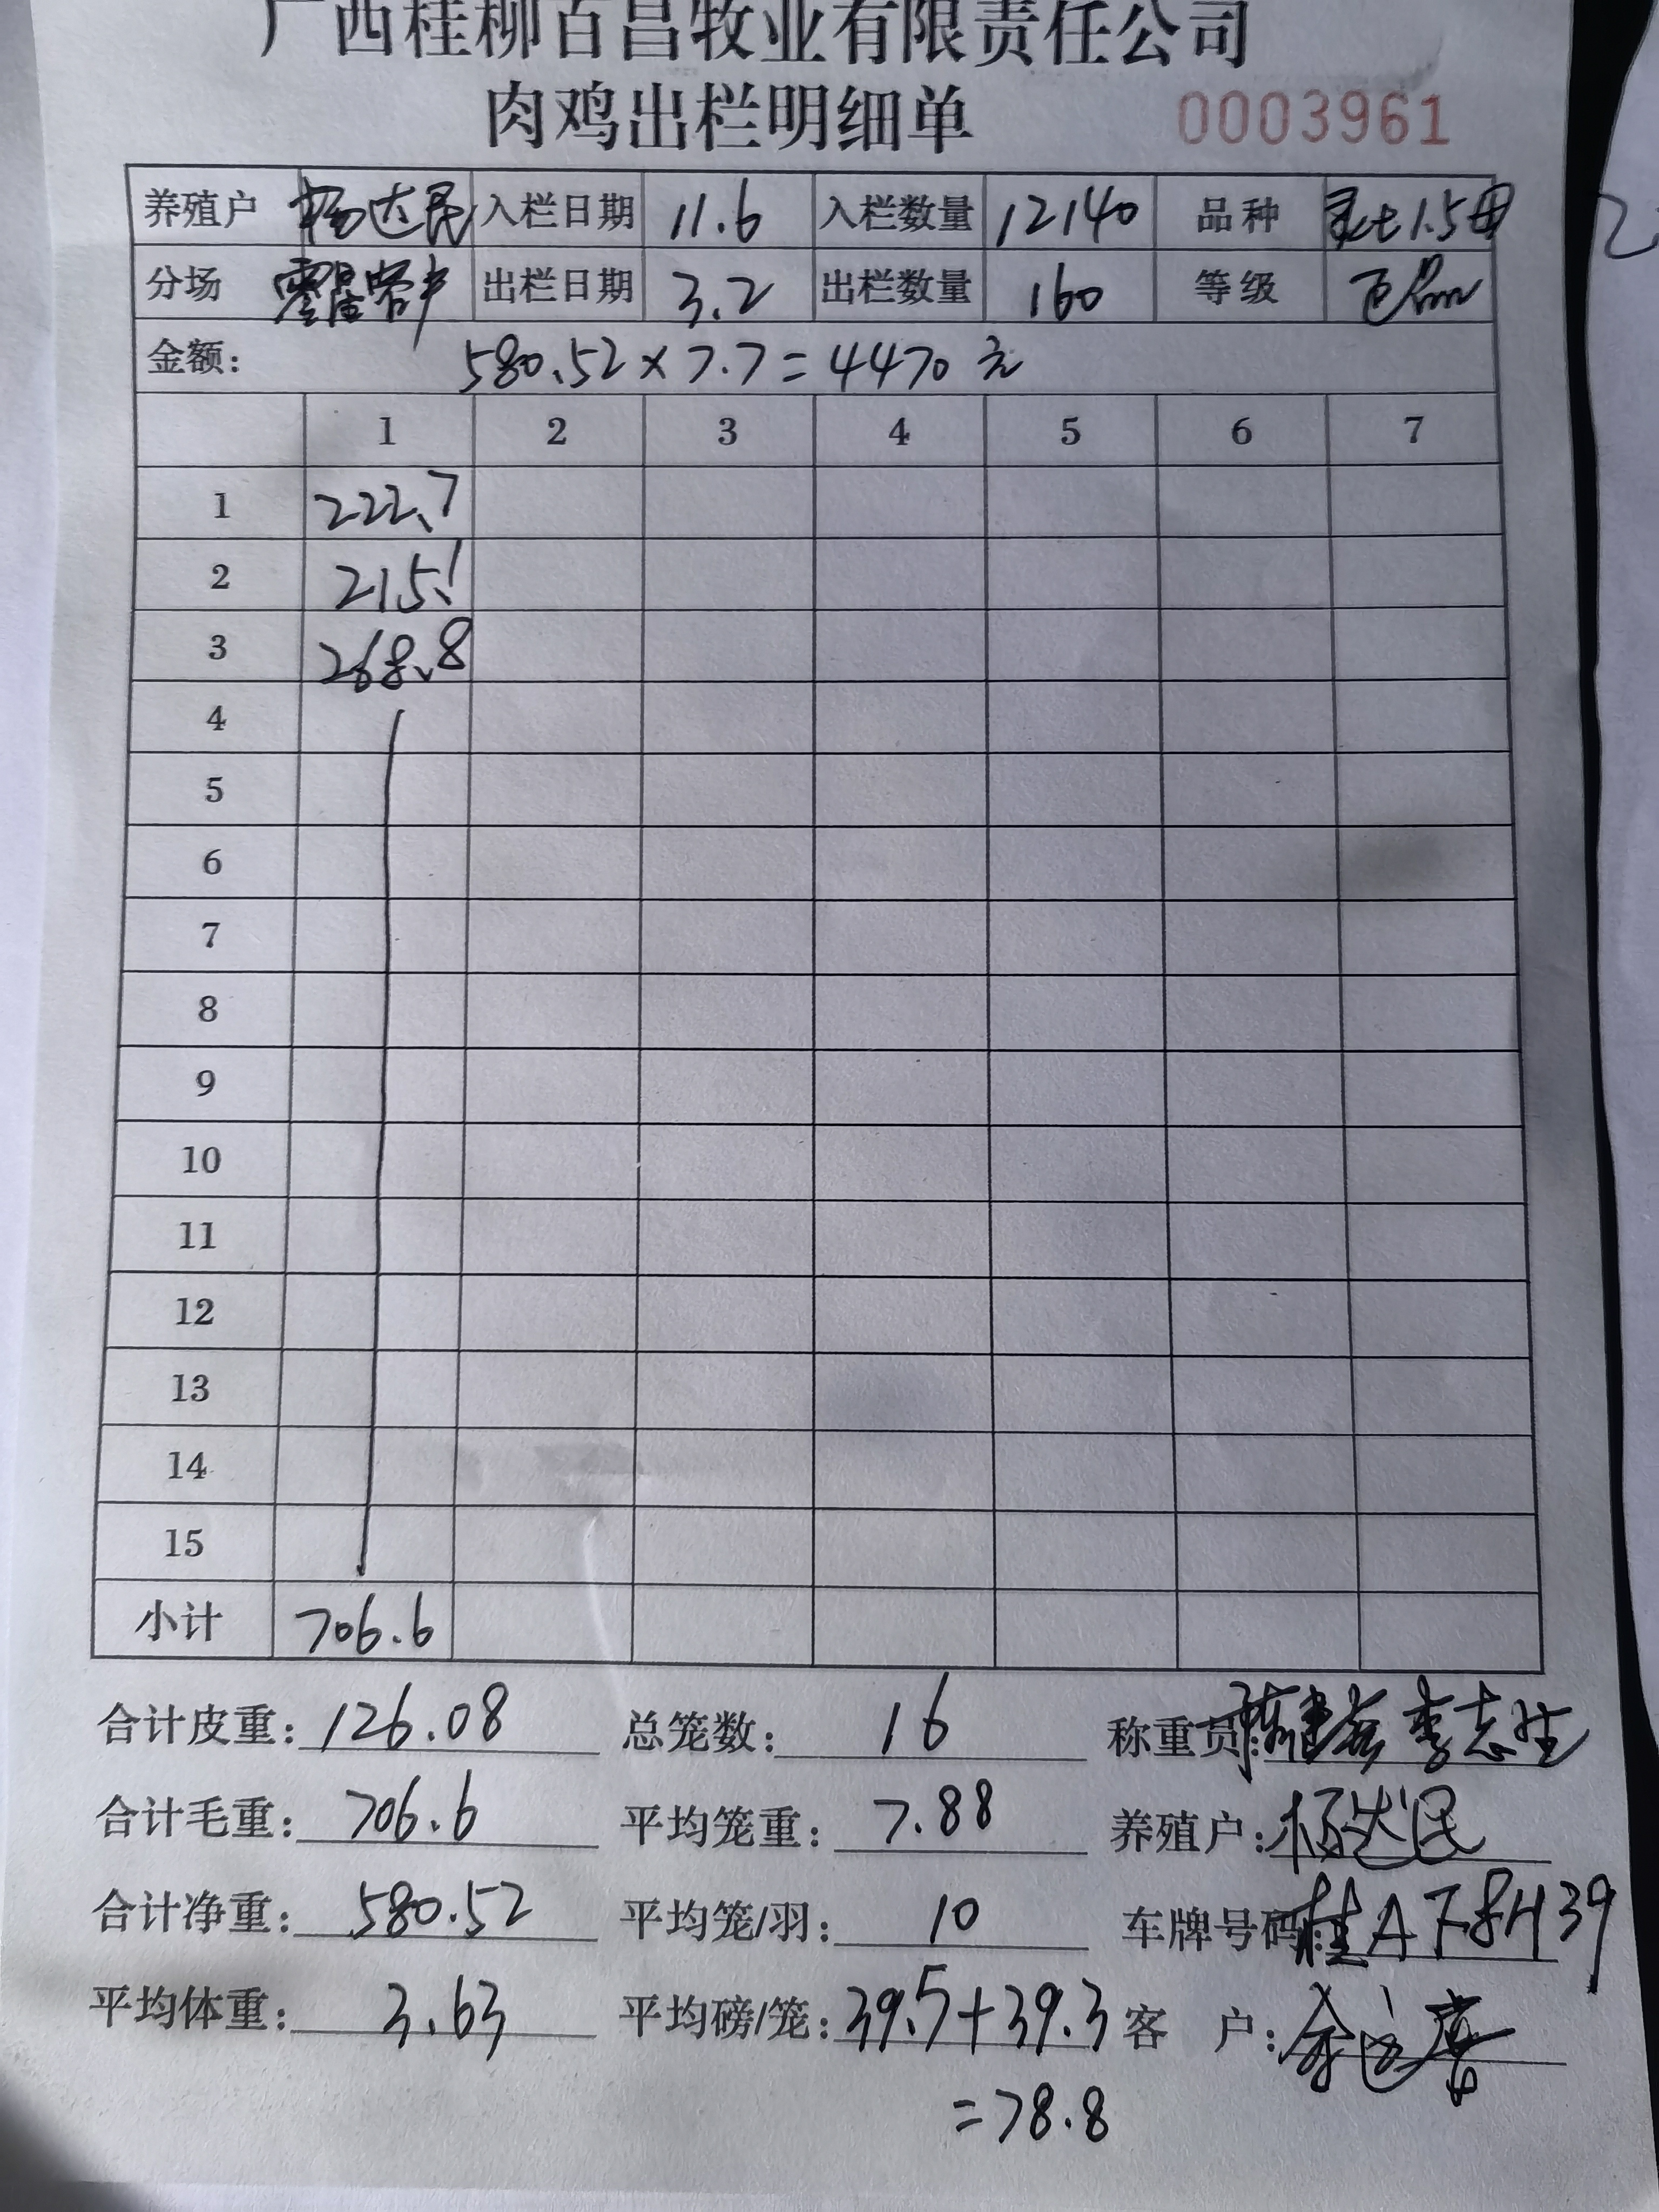 广西桂柳百昌牧业有限责任公司
肉鸡出栏明细单 0003961
养殖户 杨达民 入栏日期 11.6 入栏数量 12140 品种 1.5母
分场 出栏日期 3.2 出栏数量 160 等级
金额: 580.52×7.7=4470元
1 2 3 4 5 6 7
1 222.7
2 215.1
3 268.8
4
5
6
7
8
9
10
11
12
13
14
15
小计 706.6
合计皮重: 126.08 总笼数: 16 称重员: 李志生
合计毛重: 706.6 平均笼重: 7.88 养殖户: 杨达民
合计净重: 580.52 平均笼/羽: 10 车牌号码: 桂AF8H39
平均体重: 3.63 平均磅/笼: 39.5+39.3 客 户:
=78.8